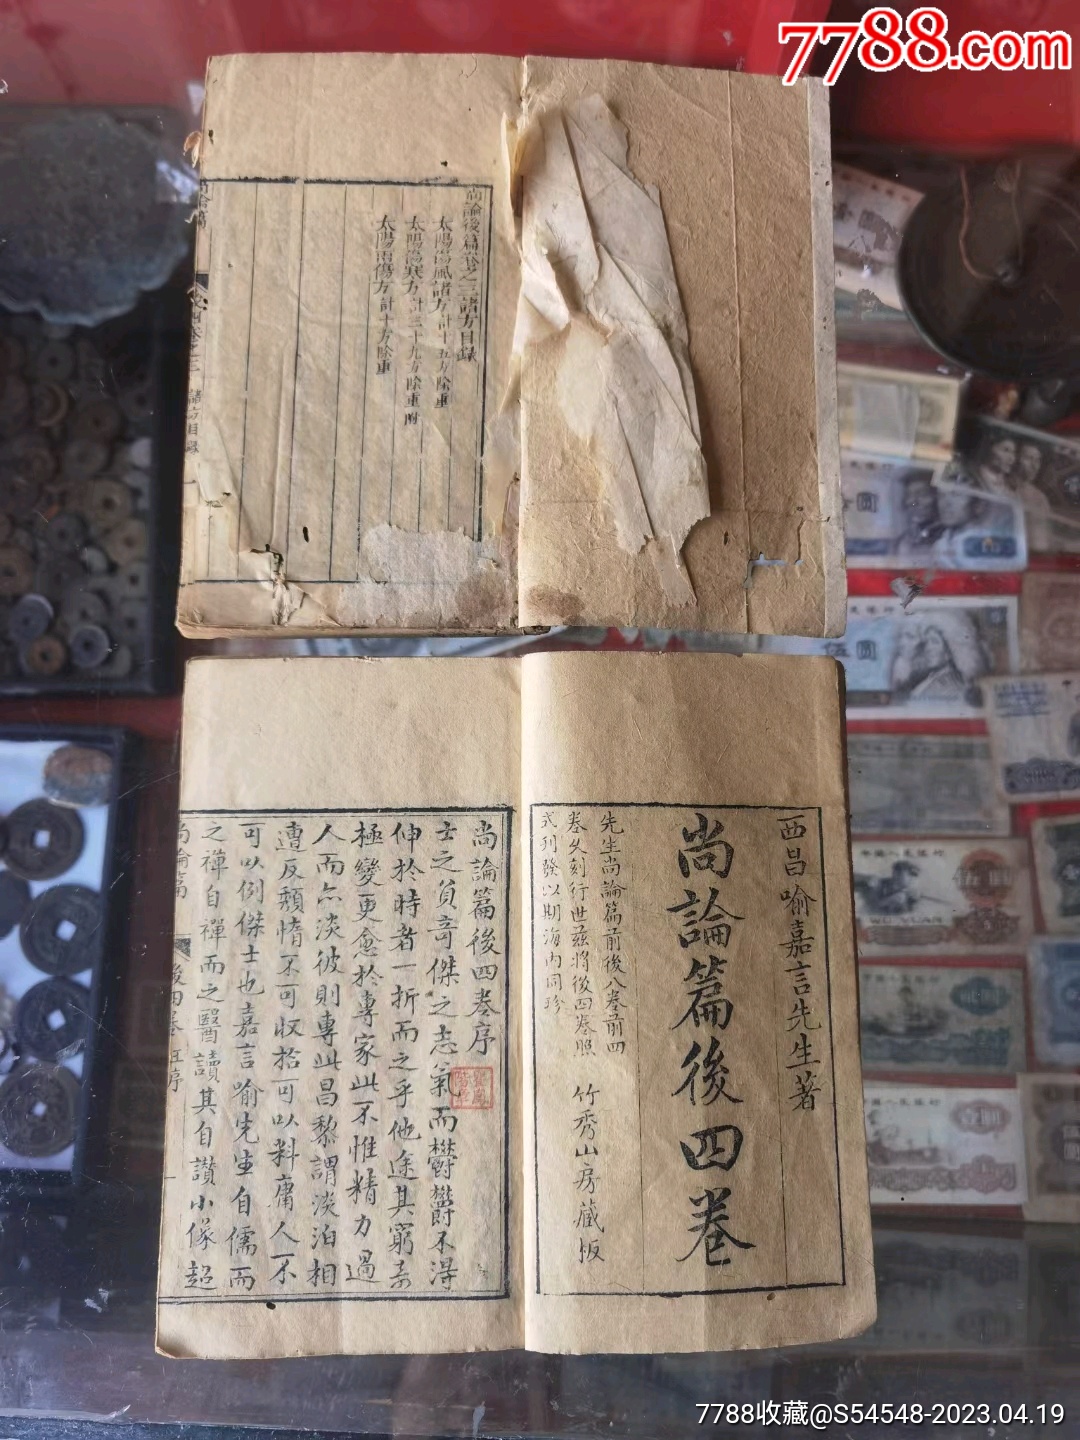 7788.com
尚論後篇卷之三諸方目錄
太陽傷風諸方計十五方除重
太陽傷寒方計三十九方除重附
太陽兩傷方計十方除重
諸方目錄
西昌喻嘉言先生著
尚論篇後四卷
先生尚論篇前後八卷前四
卷久刻行世茲將後四卷照
式刊發以期海內同珍
竹秀山房藏板
尚論篇後四卷序
士之負奇傑之志氣而欝欝不得
伸於時者一折而之乎他途其窮
極變更愈於專家此不惟精力過
人而亦淡彼則專此昌黎謂淡泊相
遭反頹惰不可收拾可以料庸人不
可以例傑士也嘉言喻先生自儒而
之禪自禪而之醫讀其自讚小像超
尚論篇 後四卷 序
伍圓
7788收藏@S54548-2023.04.19